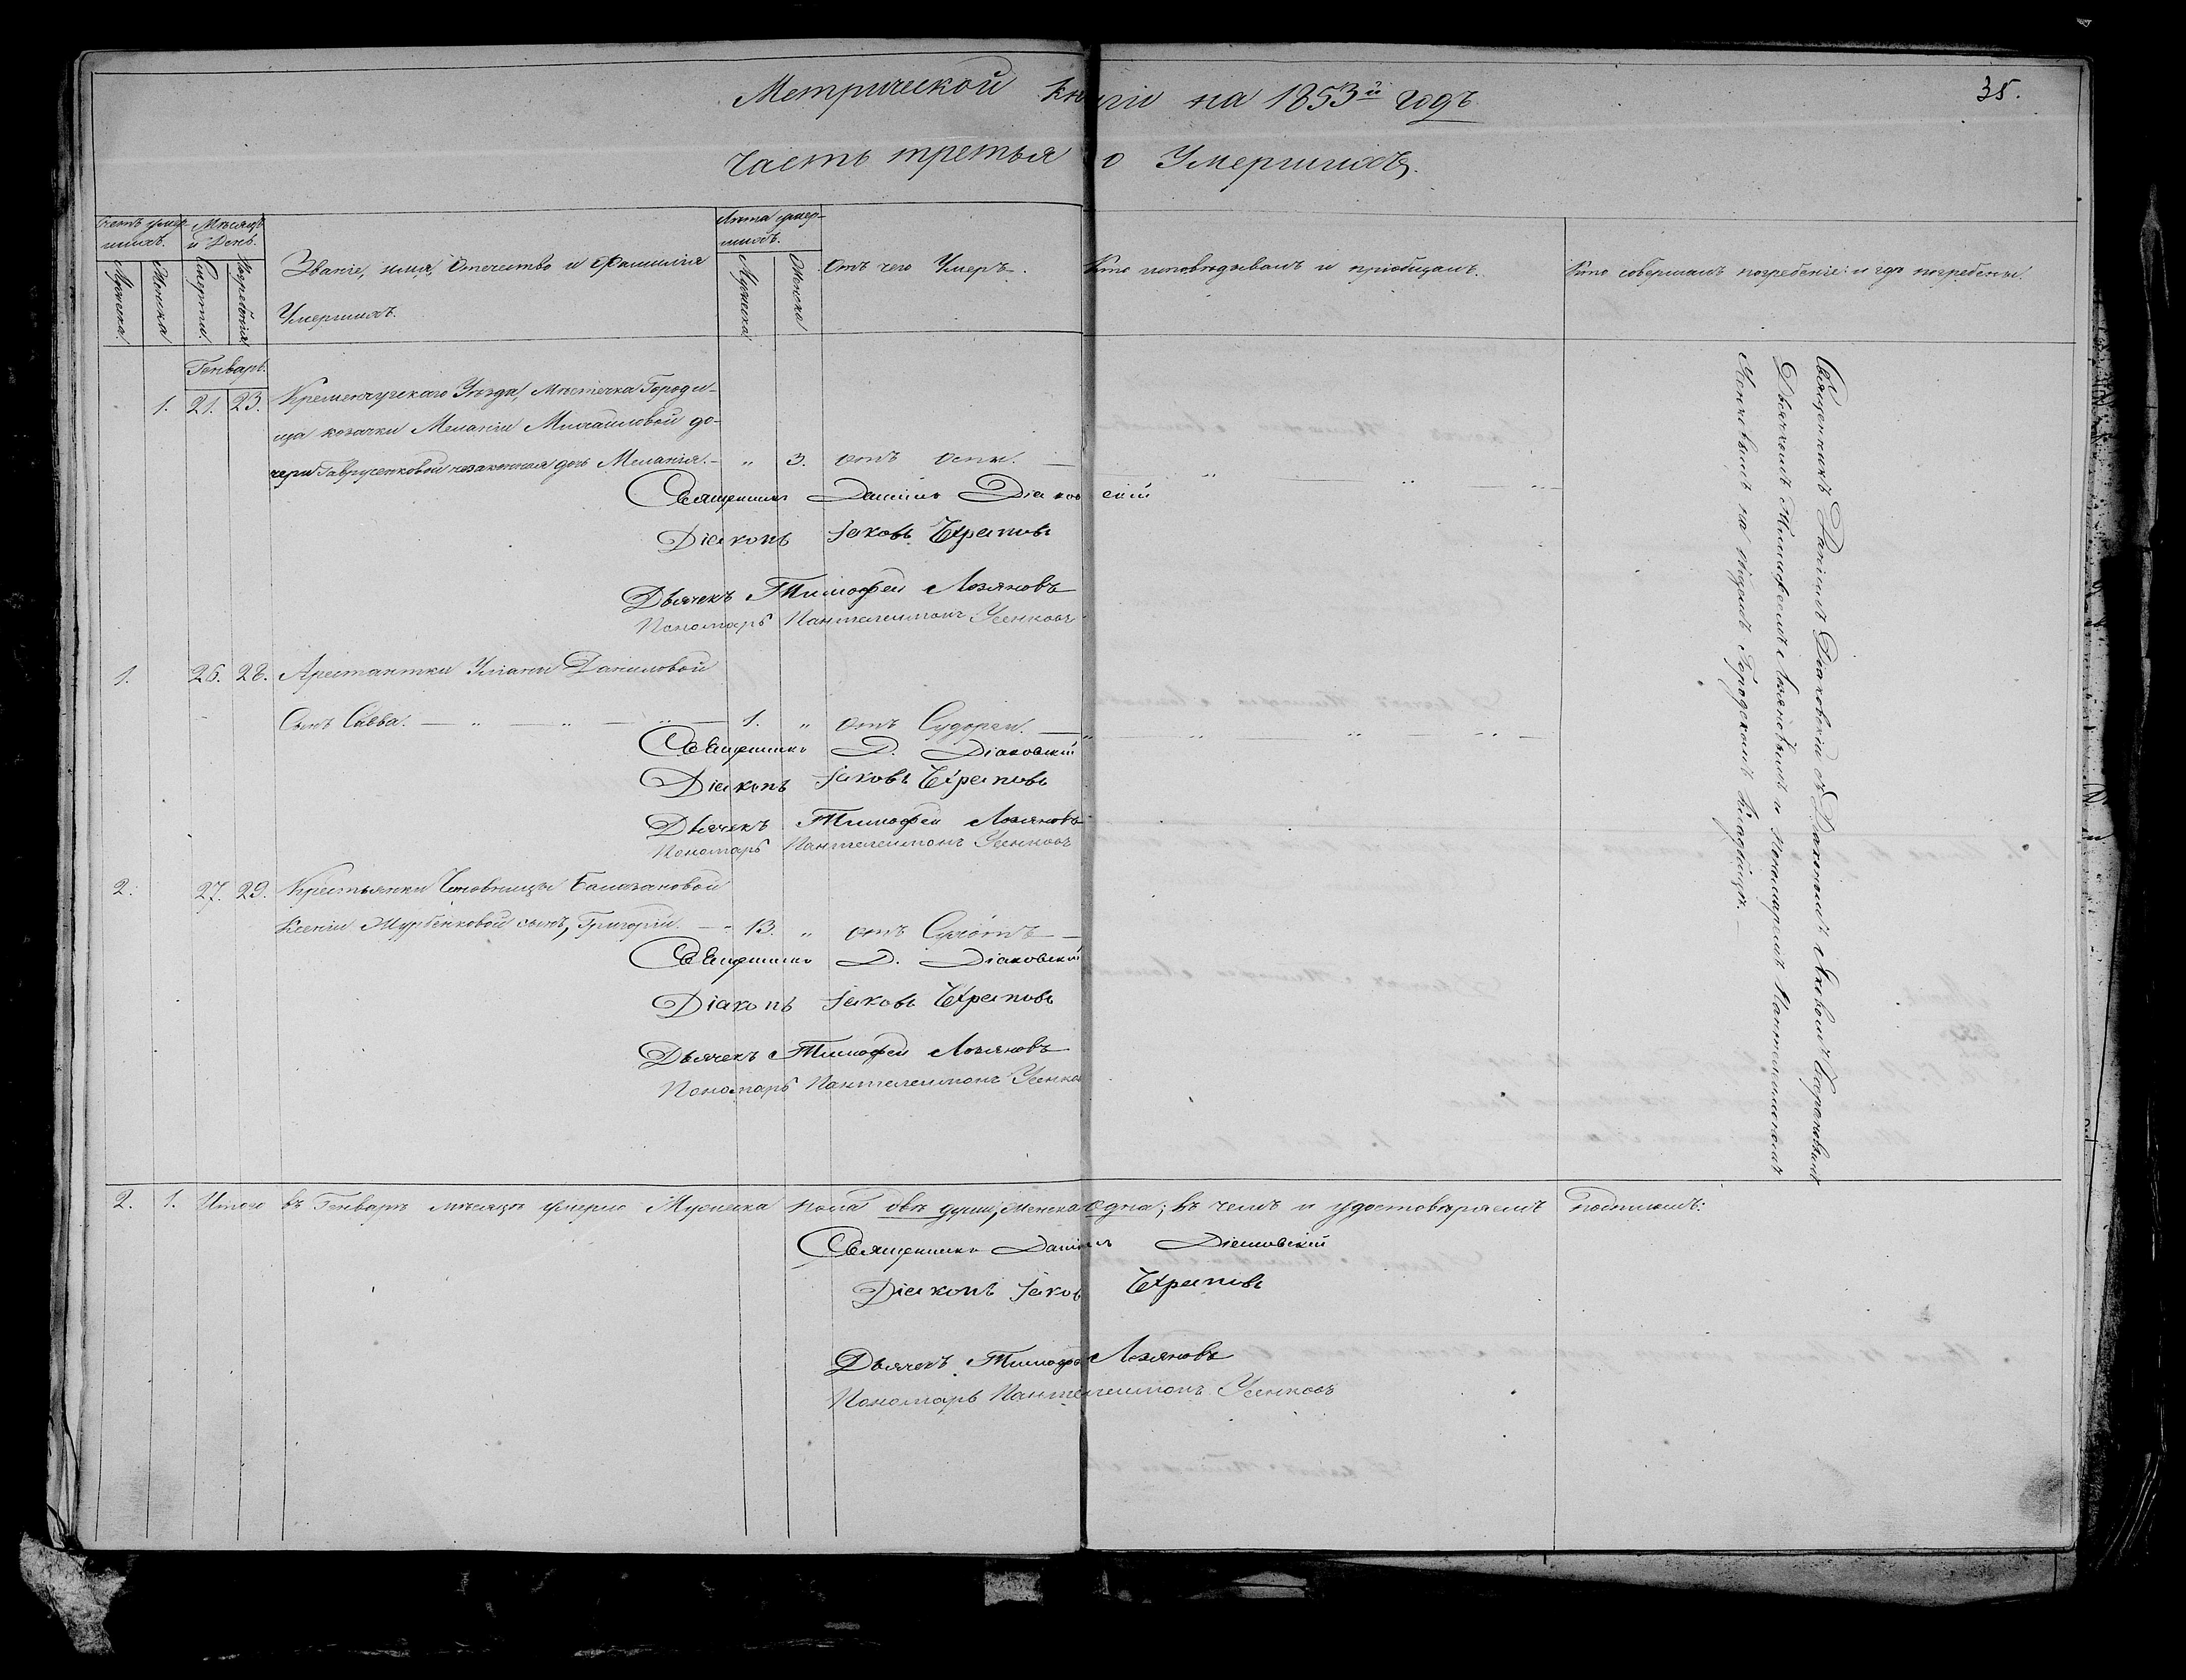 35.
Метрической книги на 1853й годъ
часть третья о Умершихъ.
Счетъ умер-
шихъ.
Мѣсяцъ
и День.
Званіе, имя, Отечество и Фамилія
Умершихъ.
Лѣта умер-
шихъ.
Отъ чего Умеръ.
Кто исповѣдывалъ и пріобщалъ.
Кто совершалъ погребеніе: и гдѣ погребены.
Мужеска.
Женска
Смерти.
Погребенія
Мужеска
Женска
Генварь.
1. 21. 23. Кременчугскаго Уѣзда, Мѣстечка Городи-
ща козачки Меланіи Михайловой до-
чери Гаврусенковой незаконная дочь Меланія. — „ 3. отъ Оспы. —
Священникъ Даніилъ Діаковскій
Діаконъ Іаковъ
Дьячекъ Тимофей Лозяновъ
Пономарь Пантелеимонъ Усенковъ
1. 26. 28. Арестантки Уліаны Даниловой
Сынъ Савва. — „ — „ — „ — 1. „ отъ Судорги. —
Священникъ Д. Діаковскій
Діаконъ Іаковъ
Дьячекъ Тимофей Лозяновъ
Пономарь Пантелеимонъ Усенковъ
2. 27. 29. Крестьянки Чиновницы
Ксеніи Журбенковой сынъ, Григорій. — 13. „ отъ —
Священникъ Д. Діаковскій
Діаконъ Іаковъ
Дьячекъ Тимофей Лозяновъ
Пономарь Пантелеимонъ Усенковъ
Священникъ Даніилъ Діаковскій съ Діакономъ Іаковомъ
Дьячкомъ Тимофеемъ Лозяновымъ и Пономаремъ Пантелеимономъ
Усенковымъ на общемъ Городскомъ кладбищѣ.
2. 1. Итого въ Генварѣ мѣсяцѣ умерло Мужеска пола двѣ души, женска одна; въ чемъ и удостовѣряемъ подписомъ:
Священникъ Даніилъ Діаковскій
Діаконъ Іаковъ
Дьячекъ Тимофей Лозяновъ
Пономарь Пантелеимонъ Усенковъ